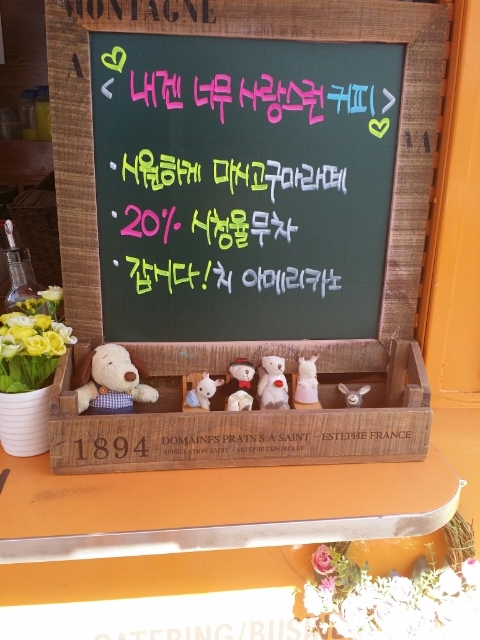 MONTAGNE
<내겐 너무 사랑스런 커피!>
· 시원하게 마시고구마라떼
· 20% 시청율무차
· 갑시다!치 아메리카노
1894 DOMAINFS PRATS S.A SAINT - ESTEPHE FRANCE
APPELLATION SAINT - ESTEPHE CONTROLEE
CATERING/BUSI